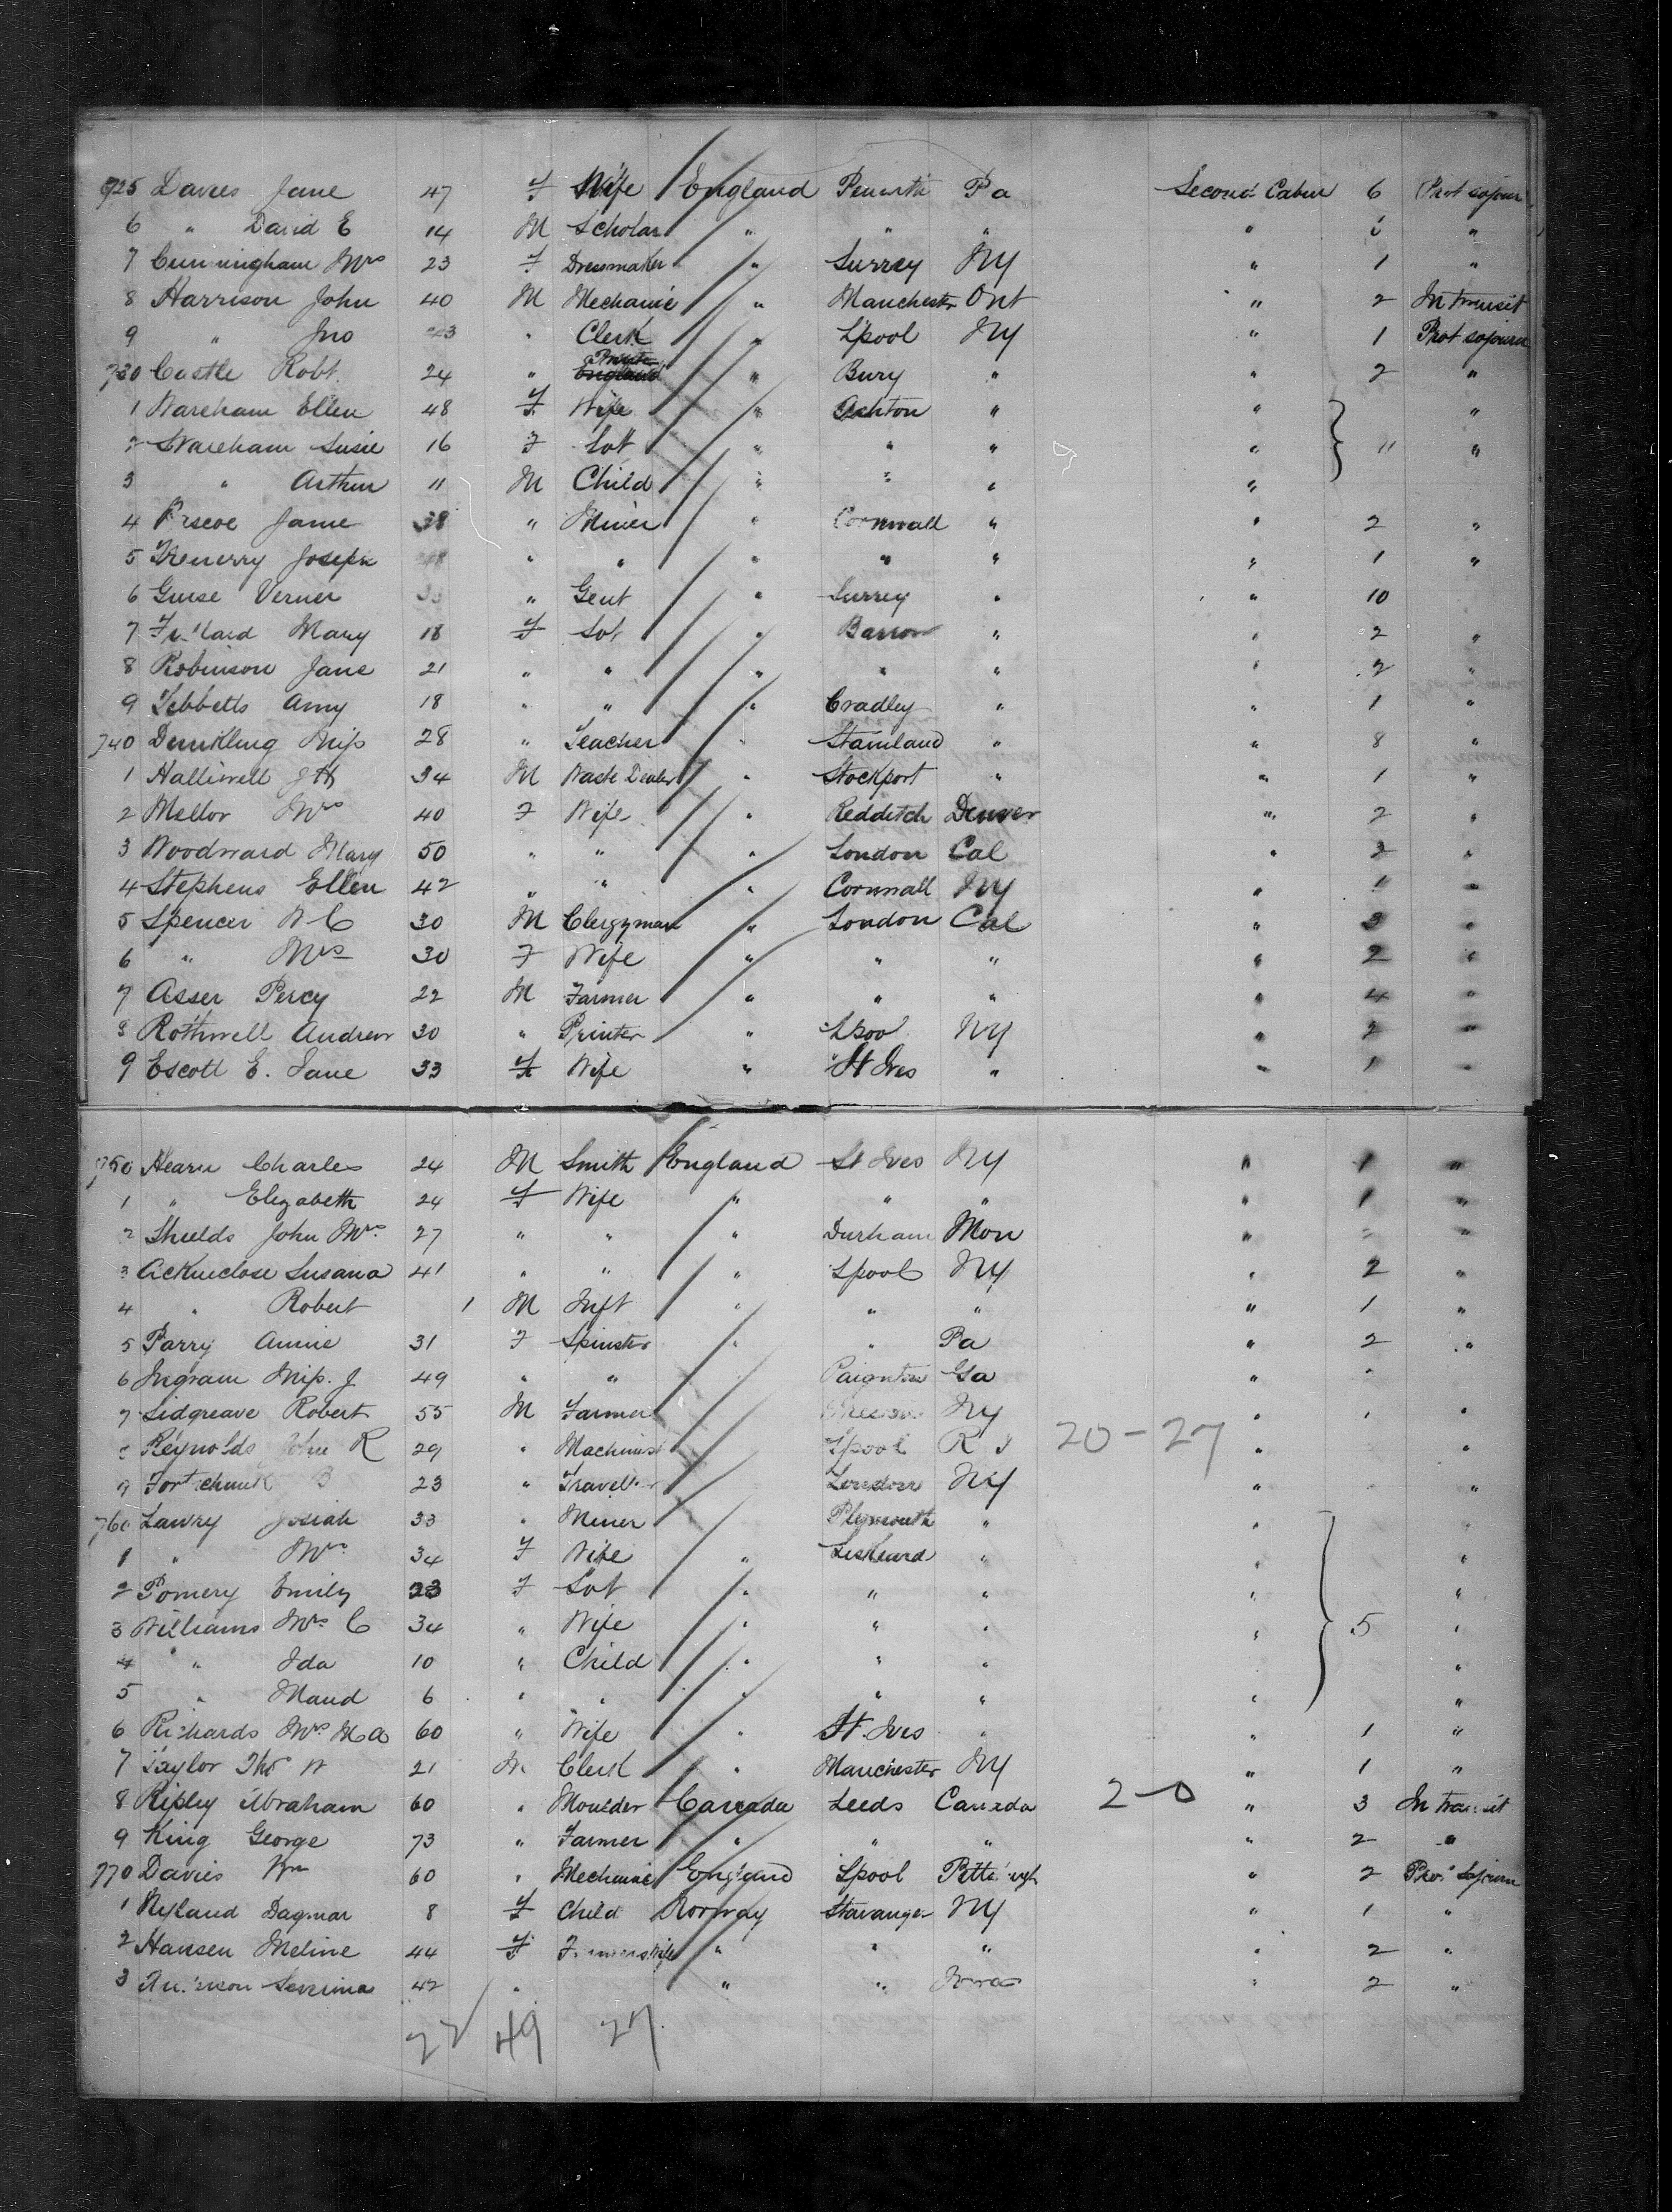 725 Davies Jane 47 F Wife England Penarth Pa Second Cabin 6 Prot sojourn
6 " David E 14 M Scholar " " " " "
7 Cunningham Mrs 23 F Dressmaker " Surrey NY " 1 "
8 Harrison John 40 M Mechanic " Manchester Ont " 2 In transit
9 " Jno " Clerk " Lpool NY " 1 Prot sojourn
730 Castle Robt. 24 " England " Bury " " 2 "
1 Wareham Ellen 48 F Wife " Ashton " " "
2 Wareham Susie 16 F " " " " 11 "
3 " Arthur 11 M Child " " " "
4 Jame 38 " Miner " Cornwall " " 2 "
5 Trenerry Joseph " " " " " " 1 "
6 Guise Verner " Gent " Surrey " " 10
7 Mary 18 F " Barrow " " 2 "
8 Robinson Jane 21 " " " " " " 2 "
9 Tebbetts Amy 18 " " " Cradley " " 1 "
740 Miss 28 " Teacher " Stainland " " 8 "
1 Halliwell J H 34 M Waste Dealer " Stockport " " 1 "
2 Mellor Mrs 40 F Wife " Redditch Denver " 2 "
3 Woodward Mary 50 " " " London Cal " 2 "
4 Stephens Ellen 42 " " " Cornwall NY " 1 "
5 Spencer W C 30 M Clergyman " London Cal " 3 "
6 " Mrs 30 F Wife " " " " 2 "
7 Asser Percy 22 M Farmer " " " " 4 "
8 Rothwell Andrew 30 " Printer " Lpool NY " 2 "
9 Escott E. Jane 33 F Wife " St Ives " " 1 "
750 Hearn Charles 24 M Smith England St Ives NY " 1 "
1 " Elizabeth 24 F Wife " " " " 1 "
2 Shields John Mrs 27 " " " Durham Mon " "
3 Susana 41 " " " Lpool NY " 2 "
4 " Robert 1 M Inft " " " " 1 "
5 Parry Annie 31 F Spinster " " Pa " 2 "
6 Ingram Miss. J 49 " " Paignton Ga "
7 Sidgreave Robert 55 M Farmer NY " "
8 Reynolds John R 29 " Machinist Lpool R I 20 - 27 " "
9 B 23 " Travell London NY " "
760 Lawry Josiah 33 " Miner Plymouth " "
1 " Mrs 34 F Wife " Liskeard " " "
2 Pomery Emily 23 F " " " " "
3 Williams Mrs C 34 " Wife " " " " 5 "
4 " Ida 10 " Child " " " "
5 " Maud 6 " " " " " " "
6 Richards Mrs M A 60 " Wife " St. Ives " " 1 "
7 Taylor Thos W 21 M Clerk " Manchester NY " 1 "
8 Ripley Abraham 60 " Moulder Canada Leeds Canada 2-0 " 3 In transit
9 King George 73 " Farmer " " " " 2 "
770 Davies Wm 60 " Mechanic England Lpool Pittsburgh " 2 Prot sojourn
1 Nyland Dagmar 8 F Child Norway Stavanger NY " 1 "
2 Hansen Meline 44 F Farmers Wife " " " " 2 "
3 Severina 42 " " " Iowa " 2 "
22 49 27